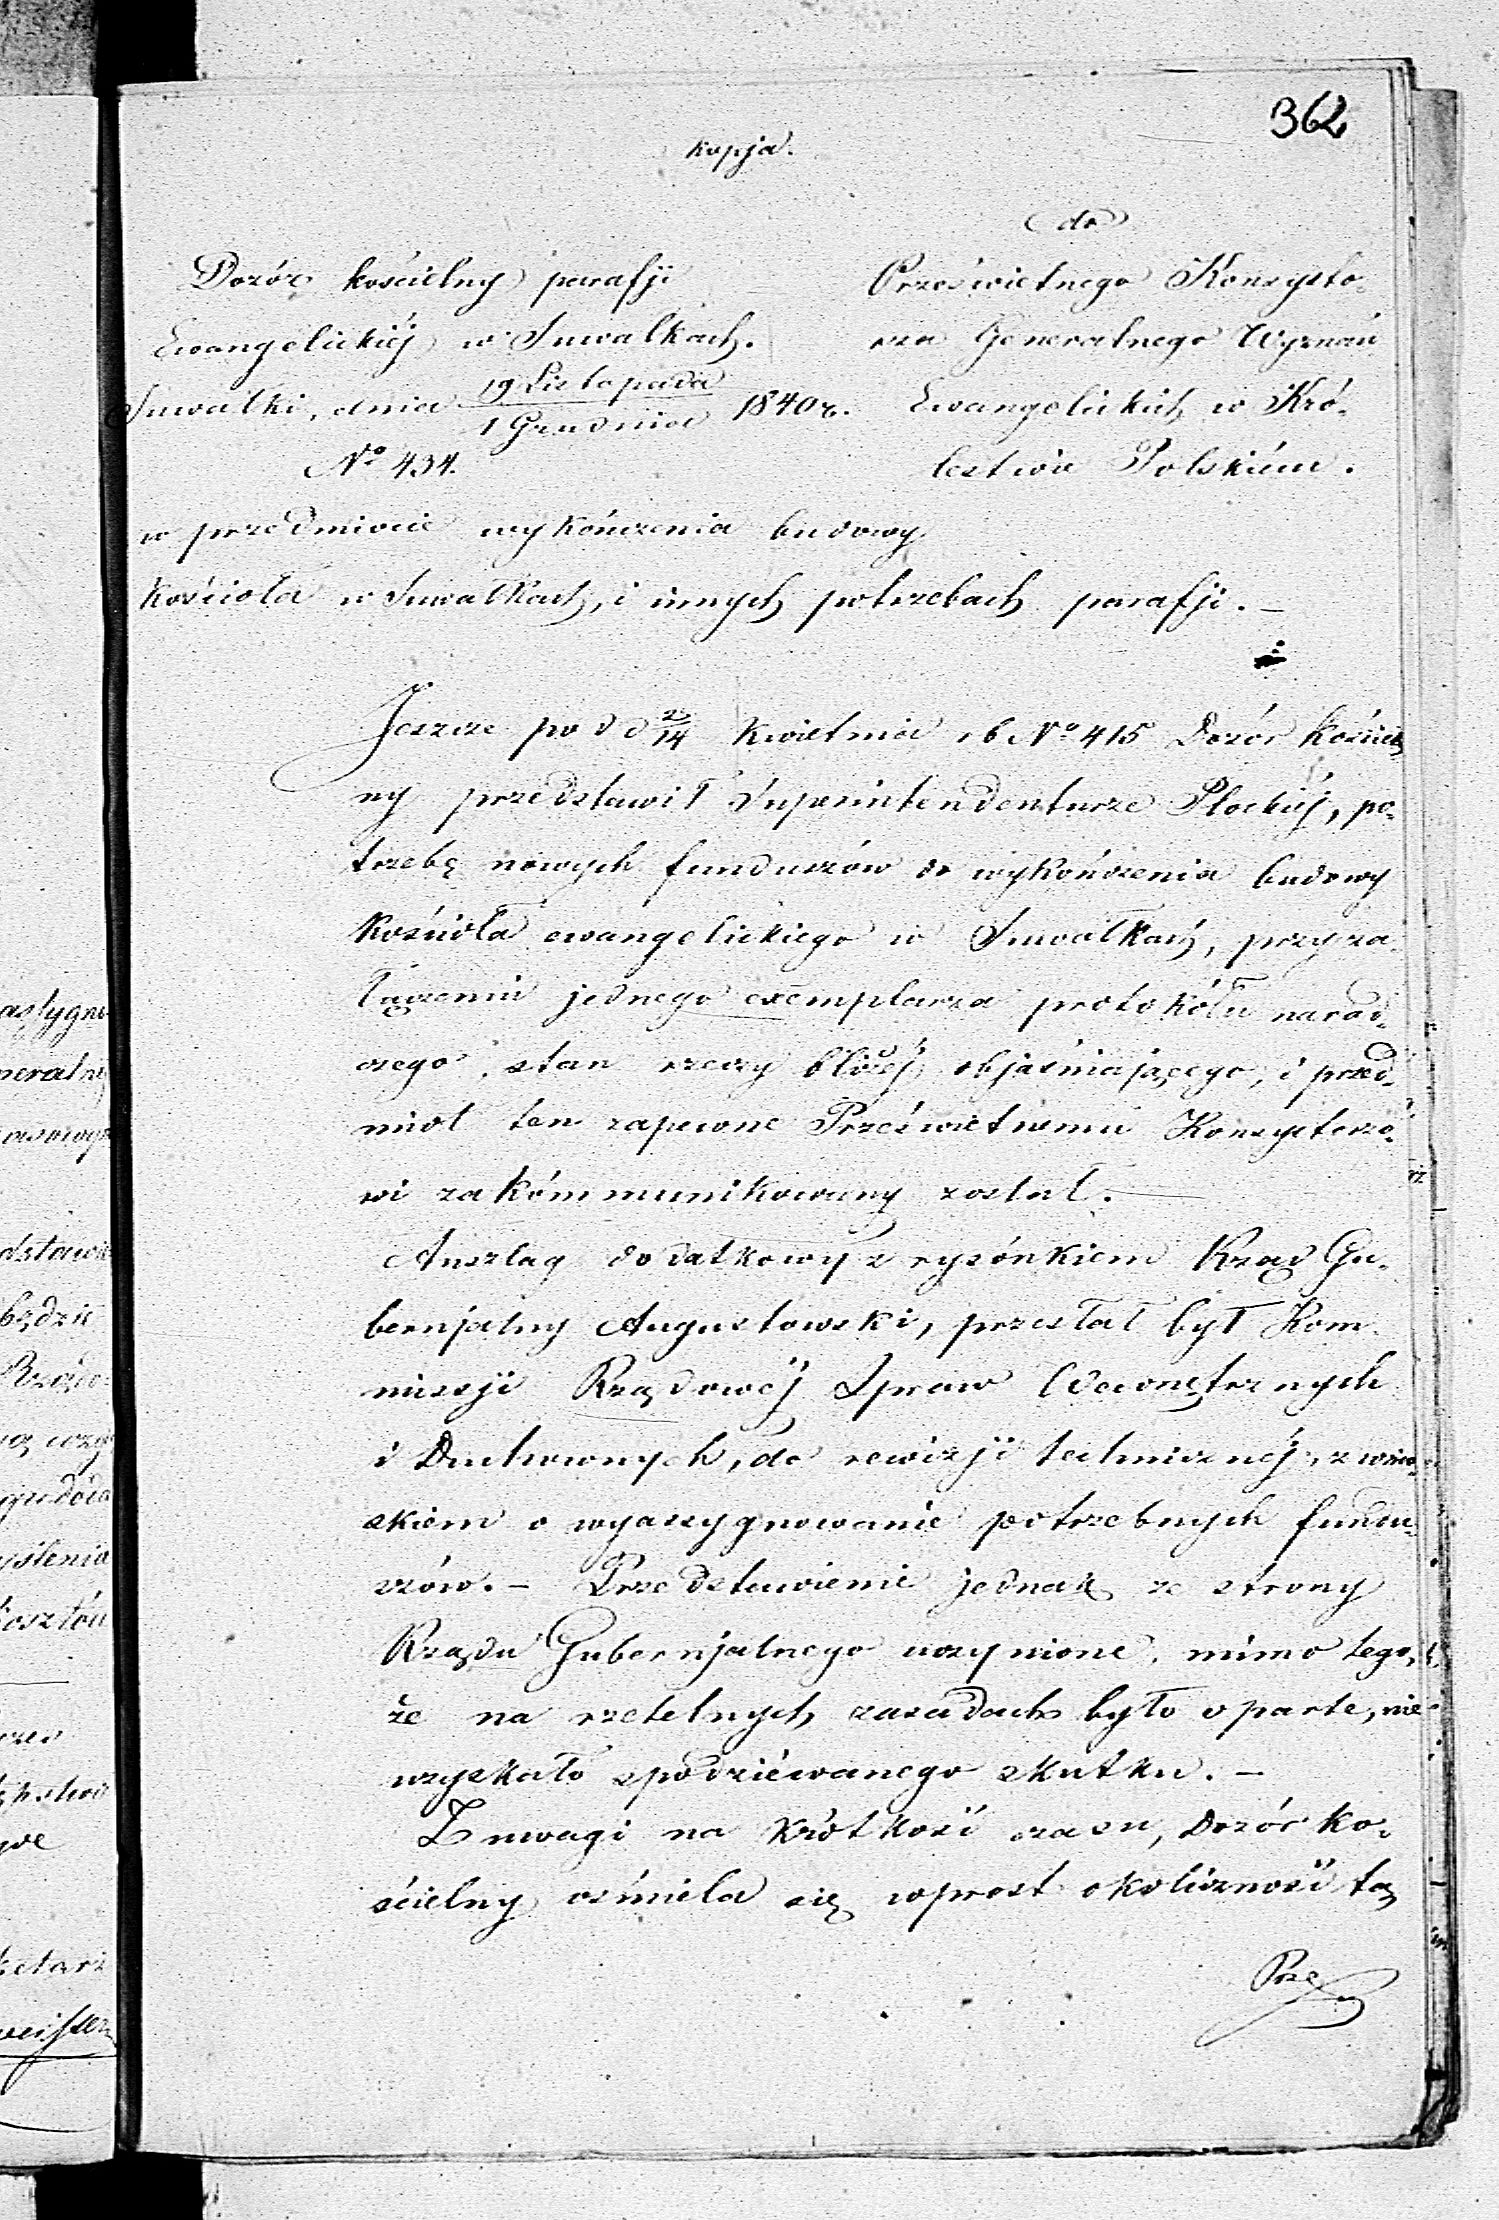 362
kopja.
Dozór kościelny parafji
Ewangelickiéj w Suwałkach.
Suwałki, dnia 19 Listopada / 1 Grudnia 1840 r.
No 434.
do
Prześwietnego Konsysto-
rza Generalnego Wyznań
Ewangelickich w Kró-
lestwie Polskiém.
w przedmiocie wykończenia budowy
Kościoła w Suwałkach, i innych potrzebach parafji. —
Jeszcze pod d 2/14 Kwietnia r b No 415 Dozór kościel
ny przedstawił Superintendenturze Płockiéj, po-
trzebę nowych funduszów do wykończenia budowy
Kościoła ewangelickiego w Suwałkach, przy za-
łączeniu jednego exemplarza protokółu narad-
czego, stan rzeczy bliżéj objaśniającego, i przed-
miot ten zapewne Prześwietnemu Konsystorzo-
wi zakómmunikowany został. —
Anszlag dodatkowy z rysónkiem Rząd Gu-
bernjalny Augustowski, przesłał był Kom-
missji Rządowéj Spraw Wewnętrznych
i Duchownych, do rewizji technicznéj, z wnio-
skiem o wyassygnowanie potrzebnych fundu-
szów. — Przedstawienie jednak ze strony
Rządu Gubernjalnego uczynione, mimo tego,
że na rzetelnych zasadach było oparte, nie
uzyskało spodziéwanego skutku. —
Z uwagi na krótkość czasu, Dozór ko-
ścielny ośmiela się wprost okoliczność tę
Prze